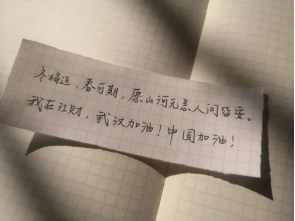 冬将近，春可期，愿山河无恙人间皆安。
我在江财，武汉加油！中国加油！